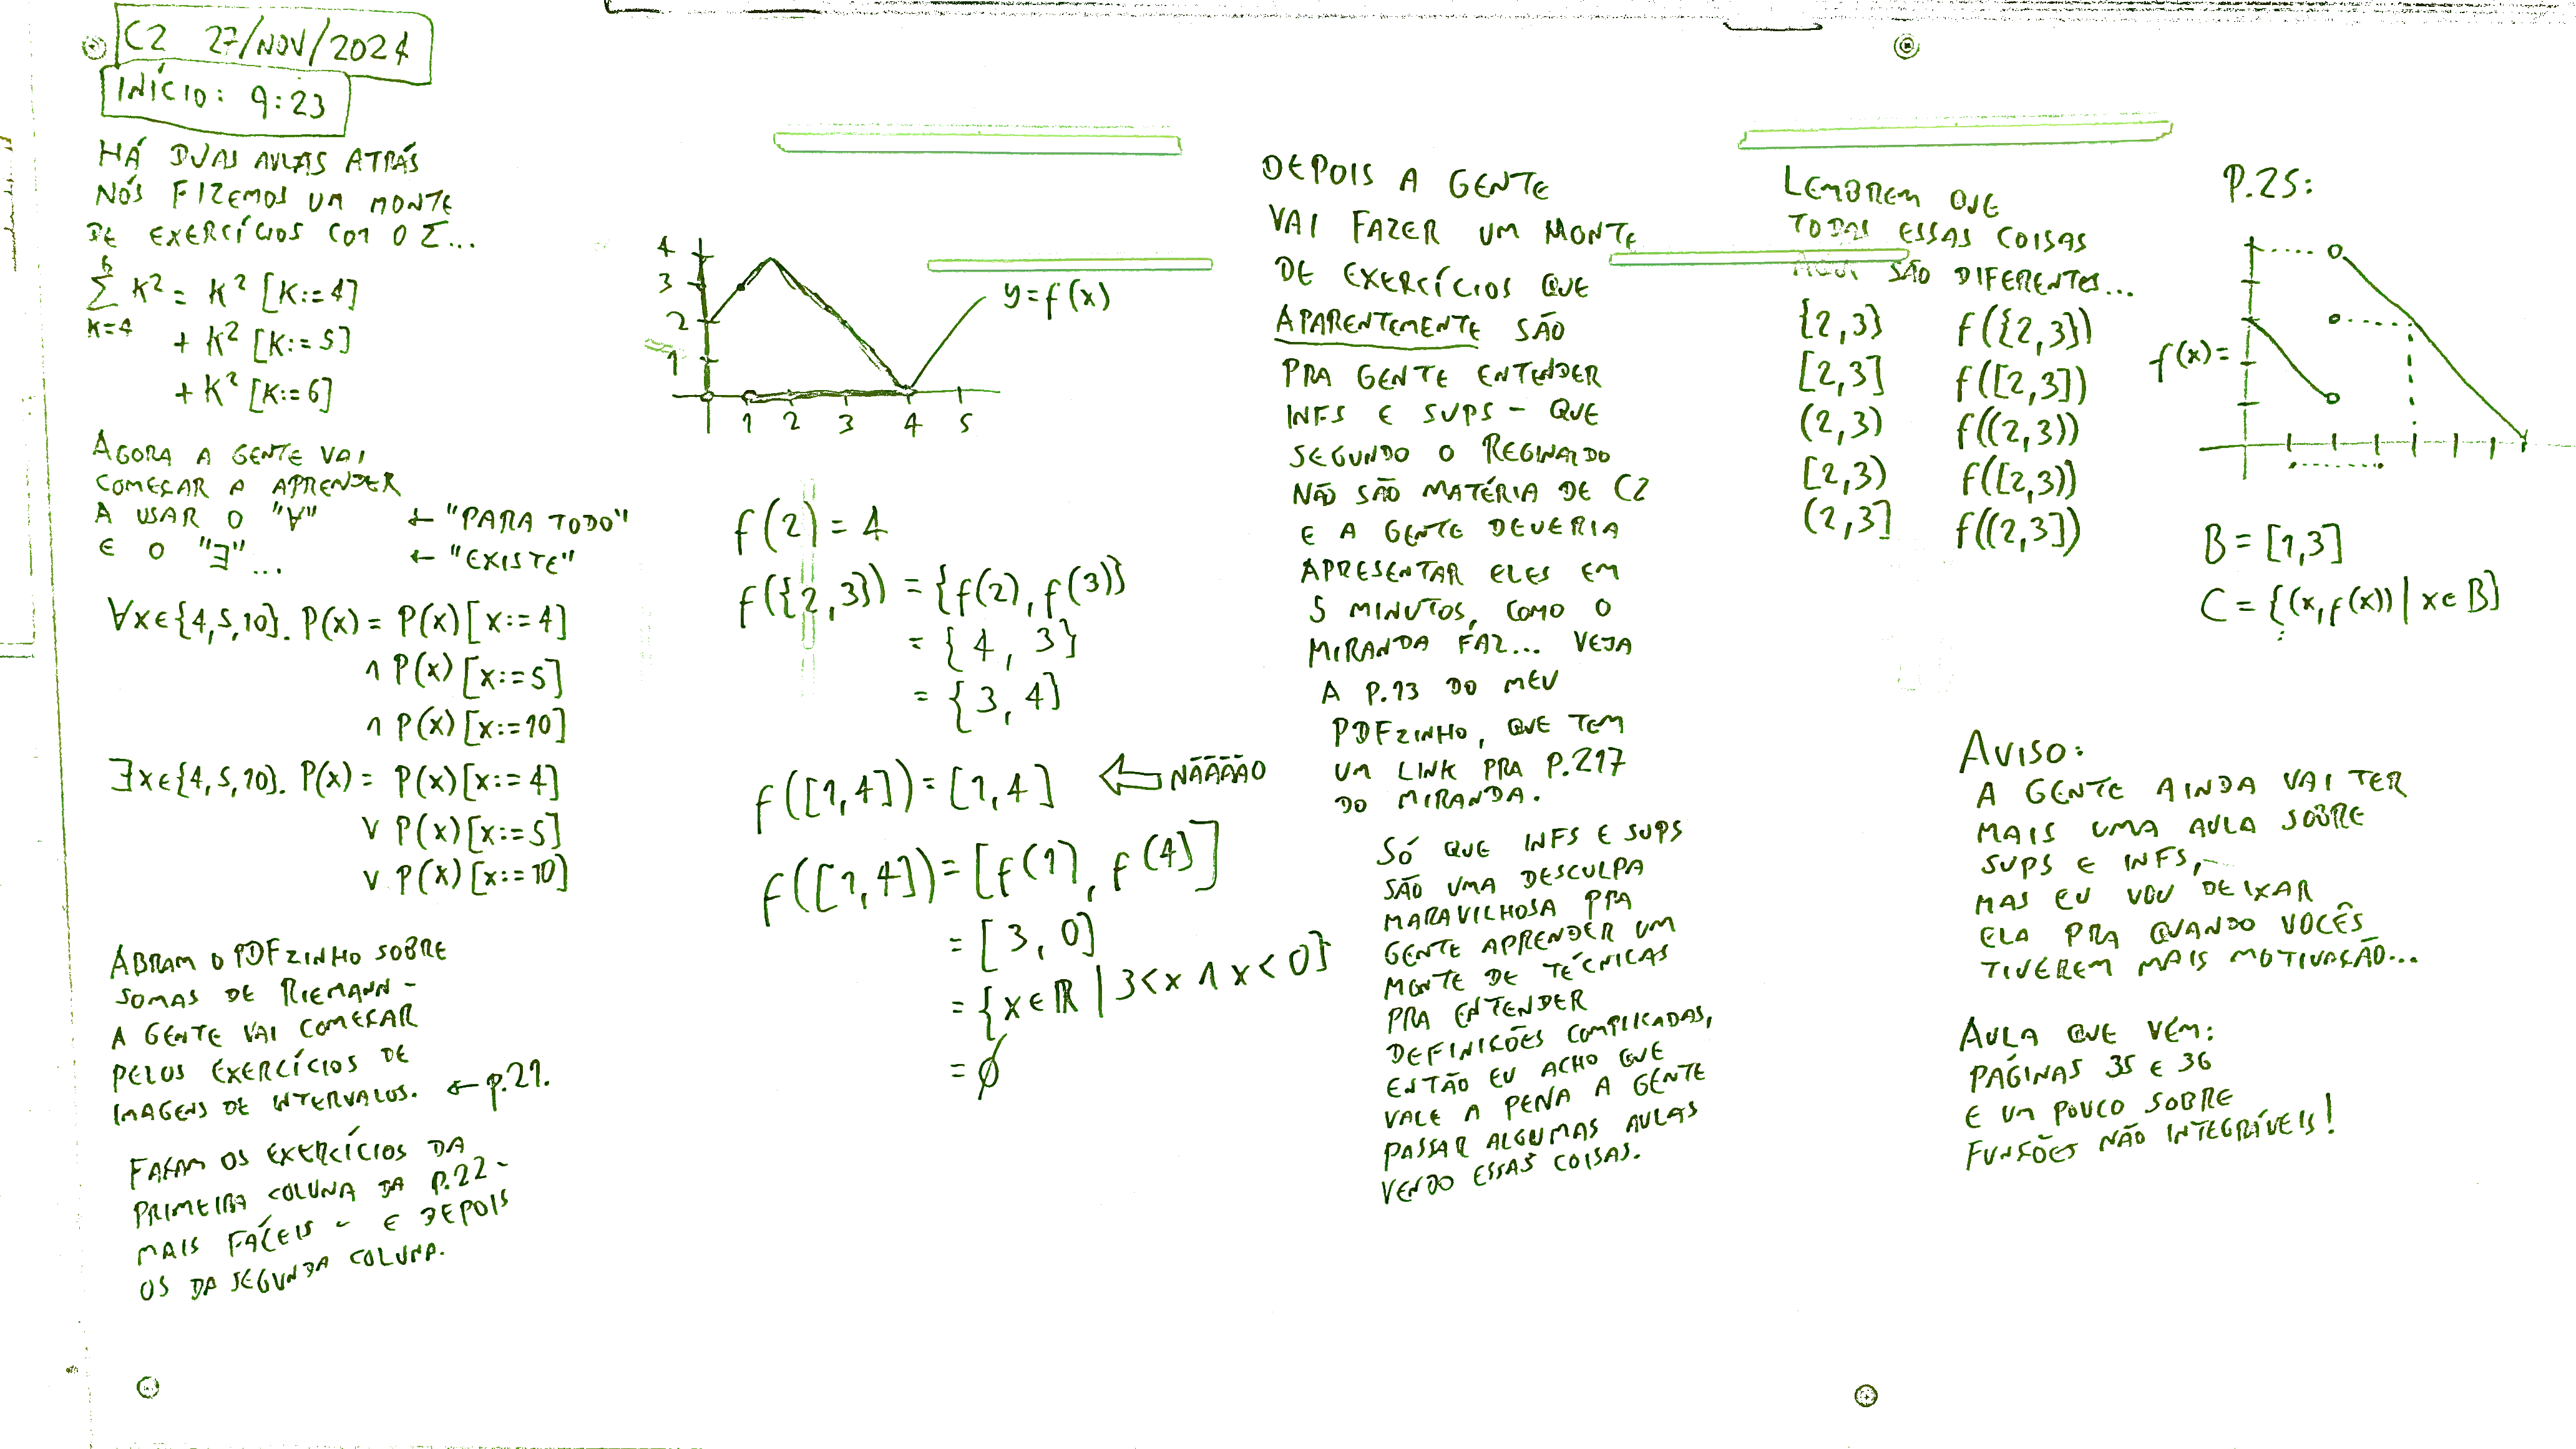 C2 27/NOV/2024
INÍCIO: 9:23
HÁ DUAS AULAS ATRÁS
NÓS FIZEMOS UM MONTE
DE EXERCÍCIOS COM O Σ...
6
Σ K² = K² [K:=4]
K=4
+ K² [K:=5]
+ K² [K:=6]
AGORA A GENTE VAI
COMEÇAR A APRENDER
A USAR O "∀" ← "PARA TODO"
E O "∃"... ← "EXISTE"
∀x∈{4,5,10}. P(x) = P(x)[x:=4]
∧ P(x)[x:=5]
∧ P(x)[x:=10]
∃x∈{4,5,10}. P(x) = P(x)[x:=4]
∨ P(x)[x:=5]
∨ P(x)[x:=10]
ABRAM O PDFZINHO SOBRE
SOMAS DE RIEMANN -
A GENTE VAI COMEÇAR
PELOS EXERCÍCIOS DE
IMAGENS DE INTERVALOS. ← p.21.
FAÇAM OS EXERCÍCIOS DA
PRIMEIRA COLUNA DA P.22 -
MAIS FÁCEIS - E DEPOIS
OS DA SEGUNDA COLUNA.
4
3
2
1
1 2 3 4 5
y=f(x)
f(2) = 4
f({2,3}) = {f(2), f(3)}
= {4, 3}
= {3, 4}
f([1,4]) = [1,4] ⇐ NÃÃÃÃO
f([1,4]) = [f(1), f(4)]
= [3, 0]
= {x∈ℝ | 3<x ∧ x<0}
= ∅
DEPOIS A GENTE
VAI FAZER UM MONTE
DE EXERCÍCIOS QUE
APARENTEMENTE SÃO
PRA GENTE ENTENDER
INFS E SUPS - QUE
SEGUNDO O REGINALDO
NÃO SÃO MATÉRIA DE C2
E A GENTE DEVERIA
APRESENTAR ELES EM
5 MINUTOS, COMO O
MIRANDA FAZ... VEJA
A P.13 DO MEU
PDFZINHO, QUE TEM
UM LINK PRA P.217
DO MIRANDA.
SÓ QUE INFS E SUPS
SÃO UMA DESCULPA
MARAVILHOSA PRA
GENTE APRENDER UM
MONTE DE TÉCNICAS
PRA ENTENDER
DEFINIÇÕES COMPLICADAS,
ENTÃO EU ACHO QUE
VALE A PENA A GENTE
PASSAR ALGUMAS AULAS
VENDO ESSAS COISAS.
LEMBREM QUE
TODAS ESSAS COISAS
AQUI SÃO DIFERENTES...
{2,3} f({2,3})
[2,3] f([2,3])
(2,3) f((2,3))
[2,3) f([2,3))
(2,3] f((2,3])
P.25:
f(x)=
B = [1,3]
C = {(x,f(x)) | x∈B}
AVISO:
A GENTE AINDA VAI TER
MAIS UMA AULA SOBRE
SUPS E INFS,
MAS EU VOU DEIXAR
ELA PRA QUANDO VOCÊS
TIVEREM MAIS MOTIVAÇÃO...
AULA QUE VEM:
PÁGINAS 35 E 36
E UM POUCO SOBRE
FUNÇÕES NÃO INTEGRÁVEIS!